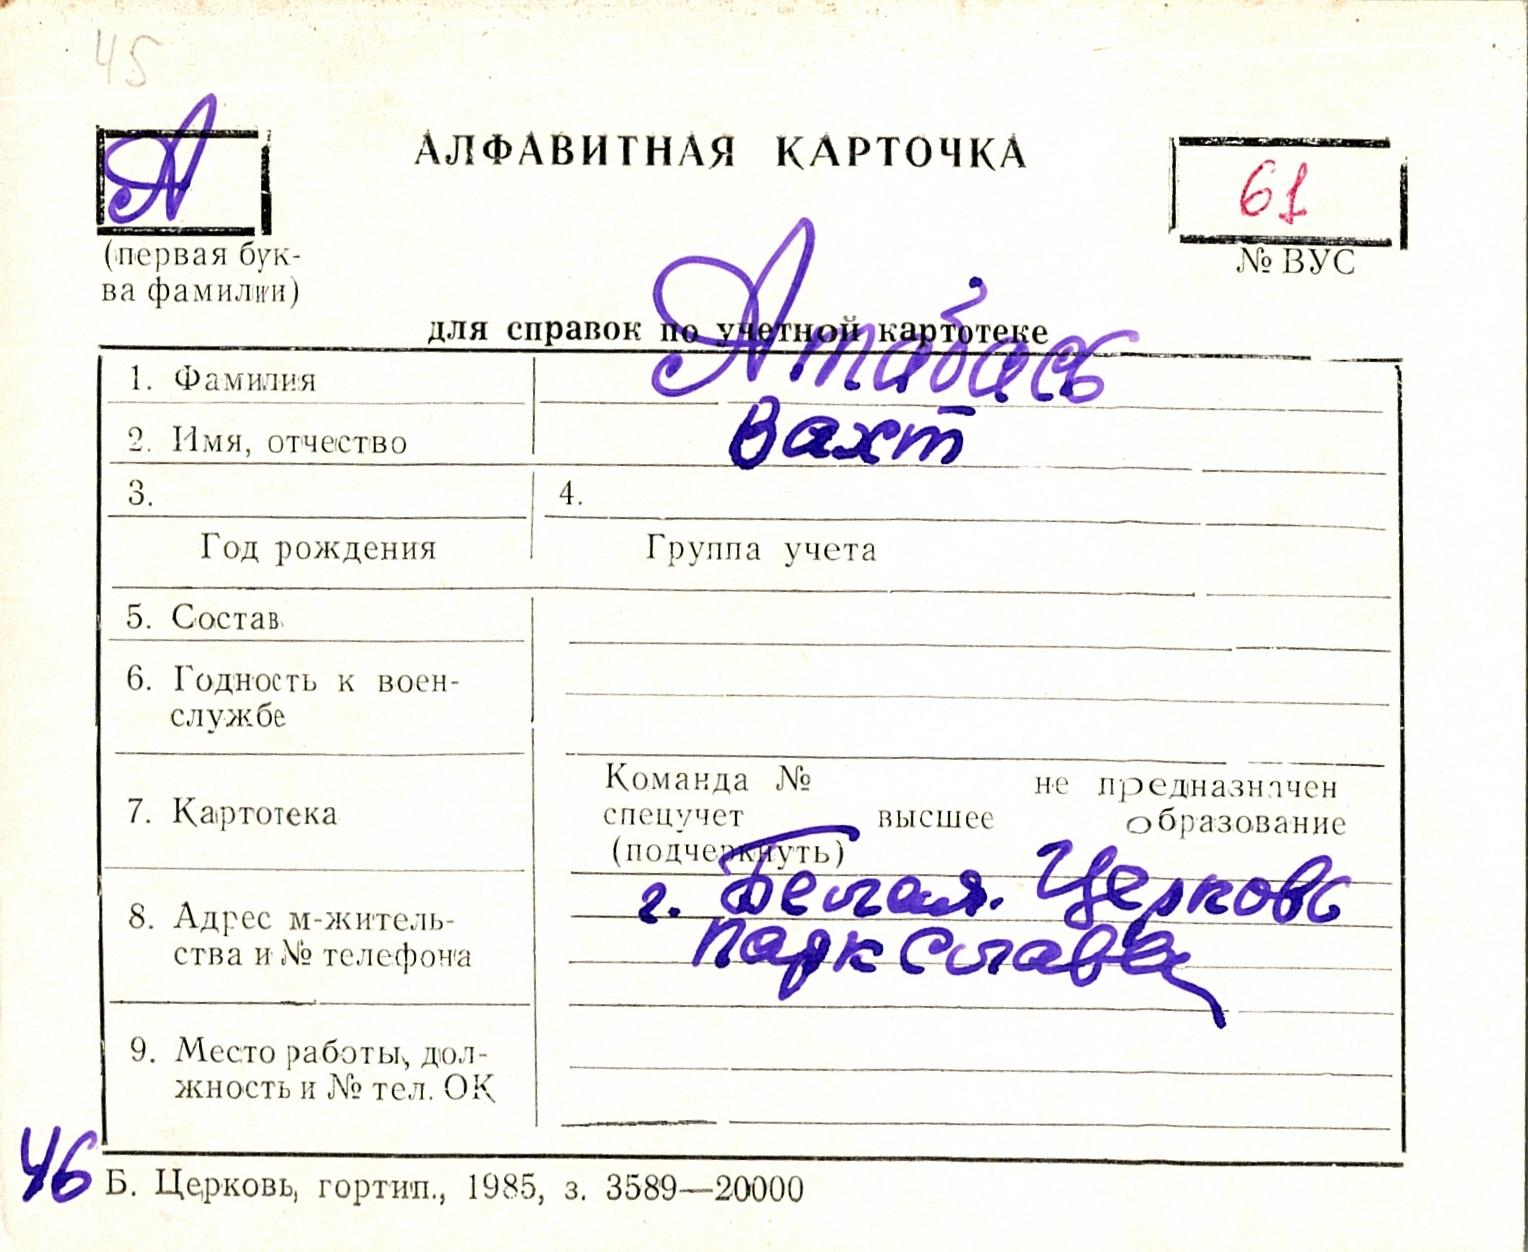 45
А
АЛФАВИТНАЯ КАРТОЧКА
61
(первая бук-
ва фамилии)
№ ВУС
для справок по учетной картотеке
1. Фамилия Атабаев
2. Имя, отчество Вахт
3. 4.
Год рождения Группа учета
5. Состав
6. Годность к воен-
службе
7. Картотека
Команда № не предназначен
спецучет высшее образование
(подчеркнуть)
8. Адрес м-житель-
ства и № телефона
г. Белая Церковь
парк Слава
9. Место работы, дол-
жность и № тел. ОК
46
Б. Церковь, гортип., 1985, з. 3589—20000